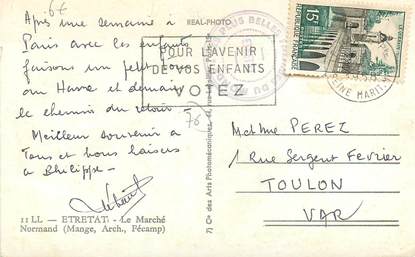 67
REAL-PHOTO
Après une semaine à
Paris avec les enfants
faisons un petit tour
au Havre et demain
le chemin du retour -
Meilleur souvenir à
Tous et bons baisers
à Philippe -
11 LL — ETRETAT - Le Marché
Normand (Mange, Arch., Fécamp)
POUR L'AVENIR
DE VOS ENFANTS
VOTEZ
76
15F
SEINE MARIT.
Cie des Arts Photomécaniques
Mr et Mme PEREZ
1 Rue Sergent Fevrier
TOULON
VAR